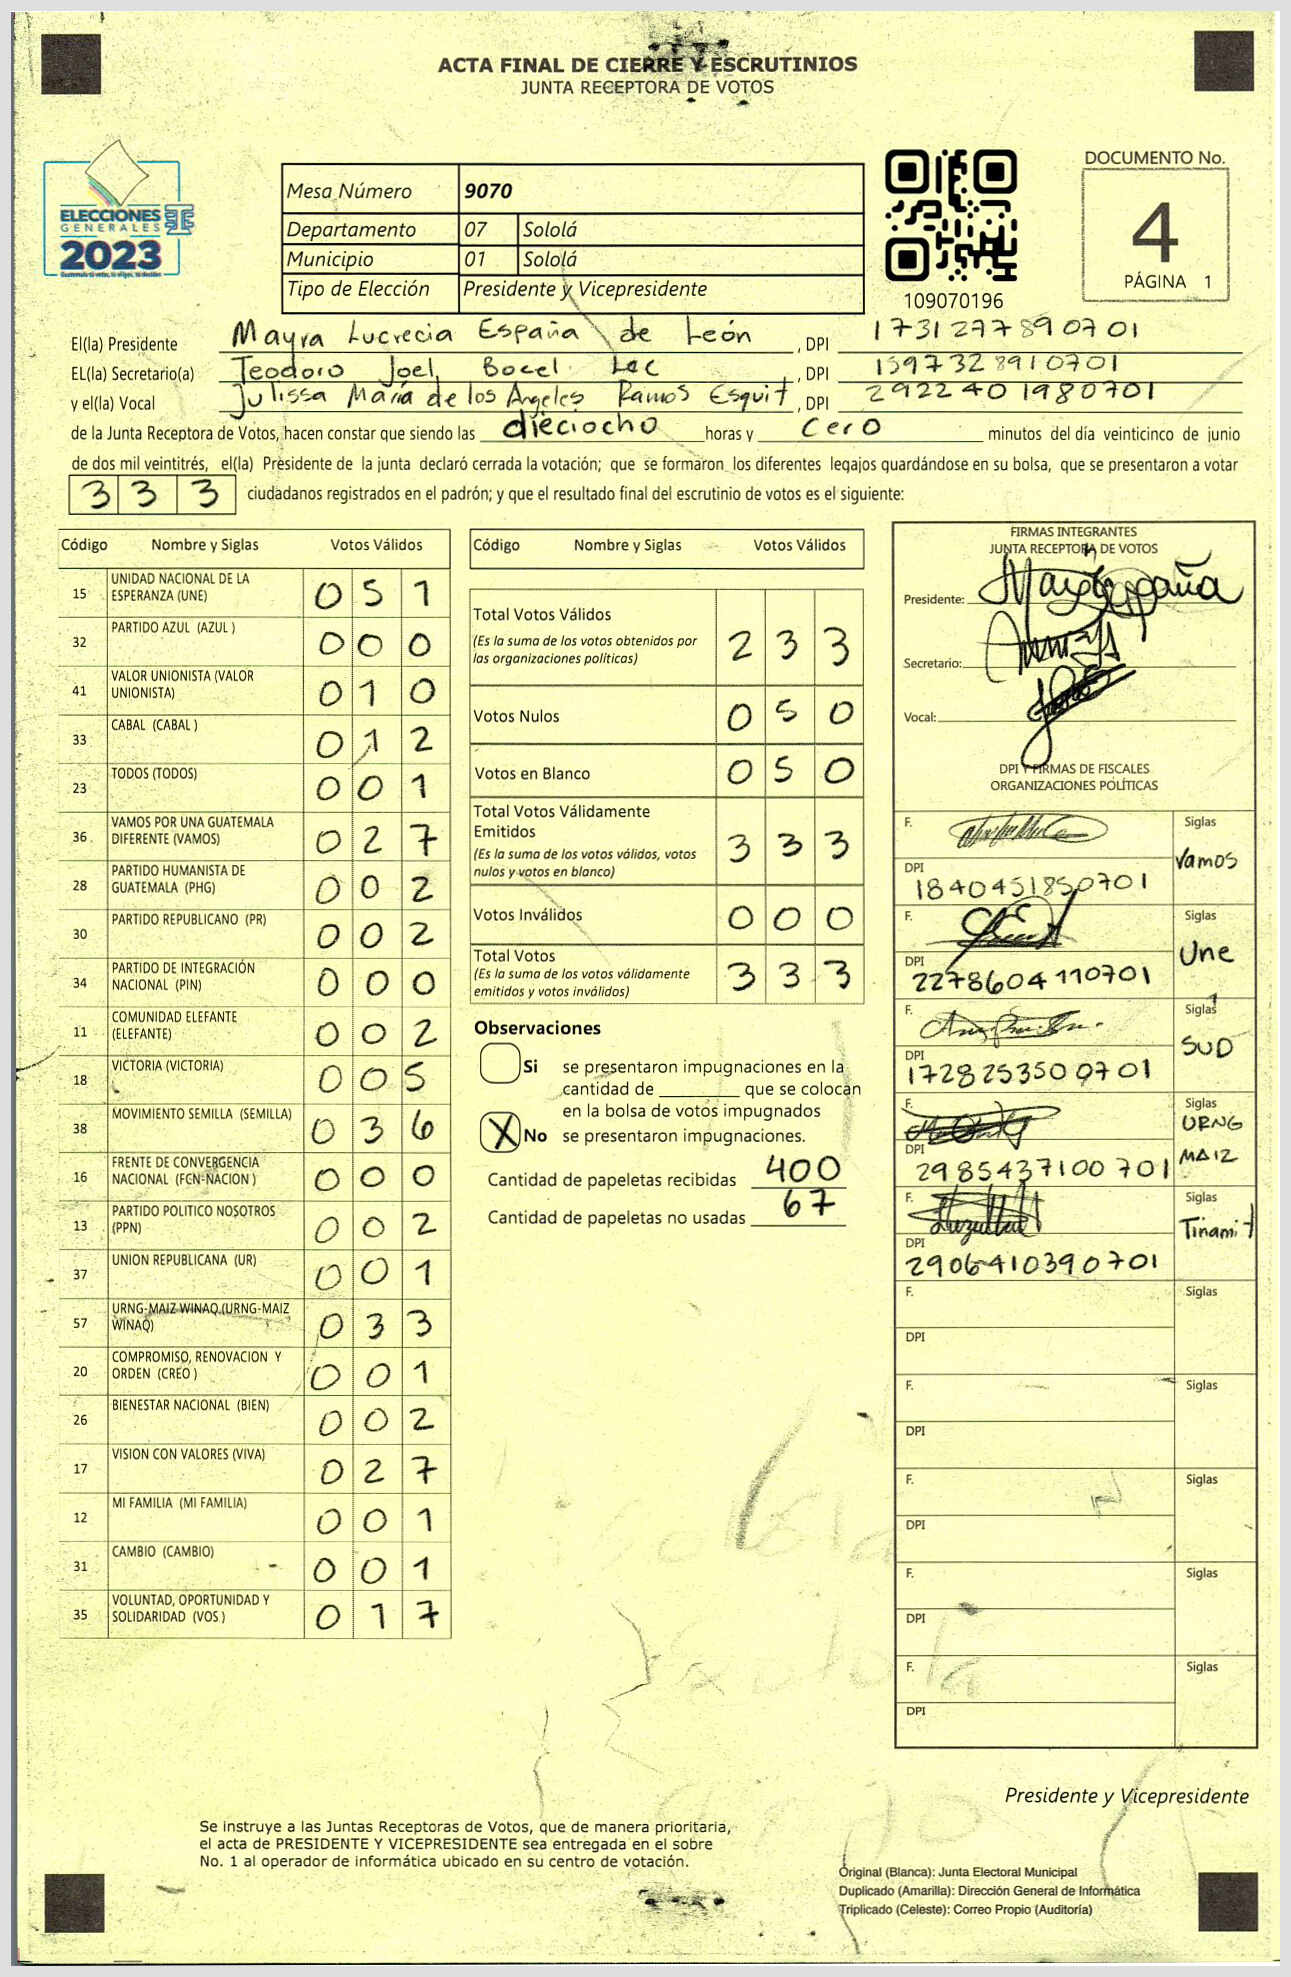 ACTA FINAL DE CIERRE Y ESCRUTINIOS
JUNTA RECEPTORA DE VOTOS
ELECCIONES
GENERALES
2023
Mesa Número 9070
Departamento 07 Sololá
Municipio 01 Sololá
Tipo de Elección Presidente y Vicepresidente
109070196
DOCUMENTO No.
4
PÁGINA 1
El(la) Presidente Mayra Lucrecia España de León, DPI 1731277890701
EL(la) Secretario(a) Teodoro Joel Bocel Lec, DPI 1597328910701
y el(la) Vocal Julissa María de los Angeles Ramos Esquit, DPI 2922401980701
de la Junta Receptora de Votos, hacen constar que siendo las dieciocho horas y cero minutos del día veinticinco de junio
de dos mil veintitrés, el(la) Presidente de la junta declaró cerrada la votación; que se formaron los diferentes legajos quardándose en su bolsa, que se presentaron a votar
333 ciudadanos registrados en el padrón; y que el resultado final del escrutinio de votos es el siguiente:
Código Nombre y Siglas Votos Válidos
15 UNIDAD NACIONAL DE LA ESPERANZA (UNE) 051
32 PARTIDO AZUL (AZUL ) 000
41 VALOR UNIONISTA (VALOR UNIONISTA) 010
33 CABAL (CABAL ) 012
23 TODOS (TODOS) 001
36 VAMOS POR UNA GUATEMALA DIFERENTE (VAMOS) 027
28 PARTIDO HUMANISTA DE GUATEMALA (PHG) 002
30 PARTIDO REPUBLICANO (PR) 002
34 PARTIDO DE INTEGRACIÓN NACIONAL (PIN) 000
11 COMUNIDAD ELEFANTE (ELEFANTE) 002
18 VICTORIA (VICTORIA) 005
38 MOVIMIENTO SEMILLA (SEMILLA) 036
16 FRENTE DE CONVERGENCIA NACIONAL (FCN-NACION ) 000
13 PARTIDO POLITICO NOSOTROS (PPN) 002
37 UNION REPUBLICANA (UR) 001
57 URNG-MAIZ WINAQ (URNG-MAIZ WINAQ) 033
20 COMPROMISO, RENOVACION Y ORDEN (CREO ) 001
26 BIENESTAR NACIONAL (BIEN) 002
17 VISION CON VALORES (VIVA) 027
12 MI FAMILIA (MI FAMILIA) 001
31 CAMBIO (CAMBIO) 001
35 VOLUNTAD, OPORTUNIDAD Y SOLIDARIDAD (VOS ) 017
Código Nombre y Siglas Votos Válidos
Total Votos Válidos 233
(Es la suma de los votos obtenidos por
las organizaciones políticas)
Votos Nulos 050
Votos en Blanco 050
Total Votos Válidamente
Emitidos 333
(Es la suma de los votos válidos, votos
nulos y votos en blanco)
Votos Inválidos 000
Total Votos 333
(Es la suma de los votos válidamente
emitidos y votos inválidos)
Observaciones
Si se presentaron impugnaciones en la
cantidad de ________ que se colocan
en la bolsa de votos impugnados
X No se presentaron impugnaciones.
Cantidad de papeletas recibidas 400
Cantidad de papeletas no usadas 67
FIRMAS INTEGRANTES
JUNTA RECEPTORA DE VOTOS
Presidente:
Secretario:
Vocal:
DPI Y FIRMAS DE FISCALES
ORGANIZACIONES POLÍTICAS
F. Siglas
Vamos
DPI
1840451850701
F. Siglas
Une
DPI
2278604110701
F. Siglas
SUD
DPI
1728253500701
F. Siglas
URNG
MAIZ
DPI
2985437100701
F. Siglas
Tinamit
DPI
2906410390701
F. Siglas
DPI
F. Siglas
DPI
F. Siglas
DPI
F. Siglas
DPI
F. Siglas
DPI
Presidente y Vicepresidente
Se instruye a las Juntas Receptoras de Votos, que de manera prioritaria,
el acta de PRESIDENTE Y VICEPRESIDENTE sea entregada en el sobre
No. 1 al operador de informática ubicado en su centro de votación.
Original (Blanca): Junta Electoral Municipal
Duplicado (Amarilla): Dirección General de Informática
Triplicado (Celeste): Correo Propio (Auditoría)